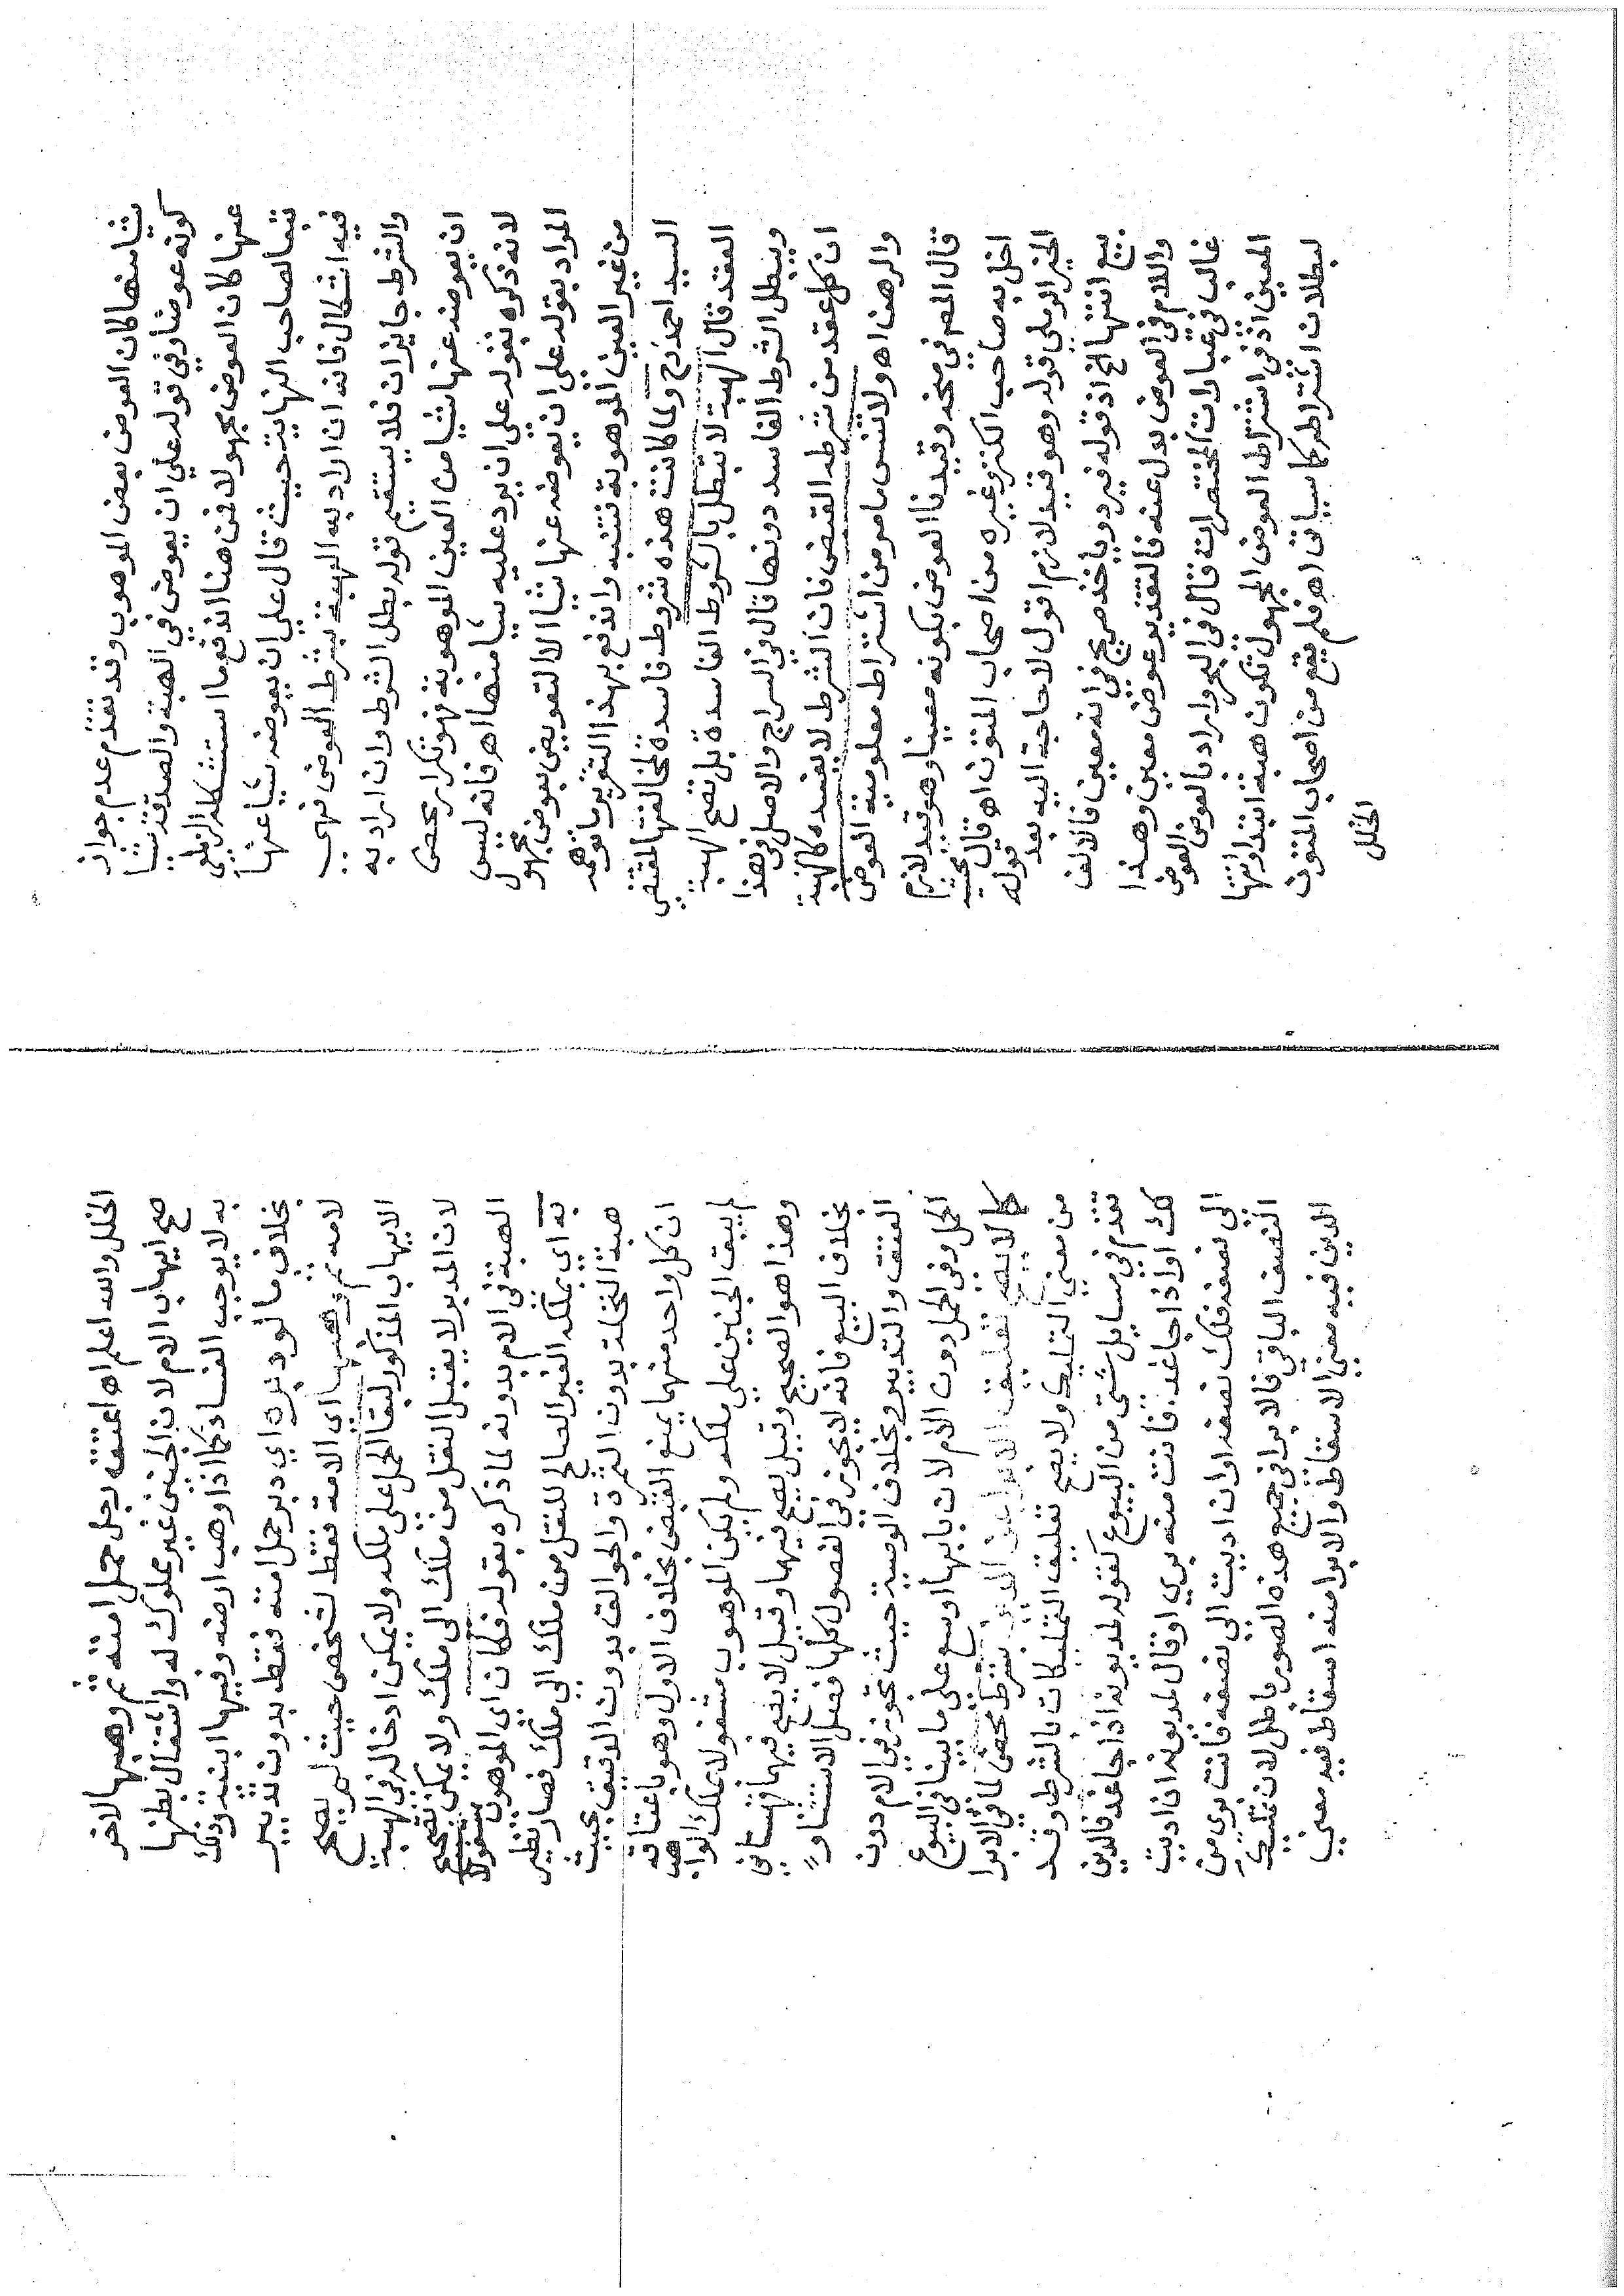 شيا منها كان العوض بعض الموهوب وقد تقدم عدم جواز
كونه عوضا وفي قوله علي ان يعوض في الهبة والصدقة شيا
عنها كان العوض مجهولا فمن هنا اندفع ما استشكله الزيلعي
تبعا لصاحب النهاية حيث قال علي ان يعوضه شيا عنها
فيه اشكال فانه ان اراد به الهبة بشرط العوض فهي
والشرط جايزان فلا يستقيم قوله بطل الشرط وان اراد به
ان يعوضه عنها شيا من العين الموهوبة فهو تكرار محض
لانه ذكره بقوله علي ان يرد عليه شيا منها اهـ فانه ليس
المراد بقوله علي ان يعوضه عنها شيا الا التعويض بعوض مجهول
من غير العين الموهوبة فتنبه واندفع بهذا التقرير ما توهمه
السيد احمد رح ولما كانت هذه شروط فاسدة لمخالفتها لمقتضي
العقد قال الهبة لا تبطل بالشروط الفاسدة بل تصح الهبة
ويبطل الشرط الفاسد دونها قال في السراج والاصل في هذا
ان كل عقد من شرطه القبض فان الشرط لا يفسده كالهبة
والرهن اهـ ولا تنس ما مر من اشتراط معلومية العوض
قال المص في منحه وقيدنا العوض بكونه معينا وهو قيد لازم
اخل به صاحب الكنز وغيره من اصحاب المتون اهـ قال محشيه
الخير الرملي قوله وهو قيد لازم اقول لا حاجة اليه بعد قوله
بيع انتها الخ اذ قوله فيرد وياخذ صريح في انه معين فالالف
واللام في العوض بدل عنه فالتقدير عوض معين وهذا
غالب في عبارات المختصرات قال في البحر واراد بالعوض العوض
المعين اذ في اشتراط العوض المجهول تكون هبة ابتدا وانتها
لبطلان اشتراطه كما سياتي اهـ فلم يقع من اصحاب المتون
الخلل
الخلل والله اعلم اهـ اعتقه رجل حمل امته ثم وهبها الاخر
صح ايهاب الام لان الجنين غير مملوك له واشتغال بطنها
به لا يوجب الفساد كما اذا وهب ارضه وفيها ابنيته وذلك
بخلاف ما لو دبره اي دبر حمل امته فقط بدون تدبير
لامه ثم وهبها اي الامة فقط لشخص حيث لم يصح
الايهاب المذكور لبقا الحمل علي ملكه ولا يمكن ادخاله في الهبة
لان المدبر لا يقبل النقل من ملك الي ملك ولا يمكن تصحيح
الهبة في الام بدونه لما ذكره بقوله فكان اي الموهوب مشغولا
به اي بملكه الغير الصالح للنقل من ملك الي ملك فصار نظير
هبة النخلة بدون الثمرة والجوالق بدون الدقيق بحيث
ان كل واحد منهما يمنع القبض بخلاف الاول وهو باعتاقه
لم يبق الجنين علي ملكه ولم يكن الموهوب مشغولا بملك الواهب
وهذا هو الصحيح وقيل يصح فيهما وقيل لا يصح فيهما قهستاني
بخلاف البيع فانه لا يجوز في الفصول كلها فعمل الاستثنا و
العتق والتدبير وبخلاف الوصية حيث تجوز في الام دون
الحمل وفي الحمل دون الام لان بابها اوسع علي ما بينا في البيوع
كما لا يصح تعليق الابرا عن الدين بشرط محض لما في الابرا
من معني التمليك ولا يصح تعليق التمليكات بالشرط وقد
تقدم في مسايل شتي من البيوع كقوله لمديونه اذا جا غد فالدين
لك او اذا جا غد فانت منه بري او قال لمديونه ان اديت
الي نصفه فلك نصفه او ان اديت الي نصفه فانت بري من
النصف الباقي فالابرا في جميع هذه الصور باطل لان تمليك
الدين فيه معني الاسقاط والابرا منه اسقاط فيه معني